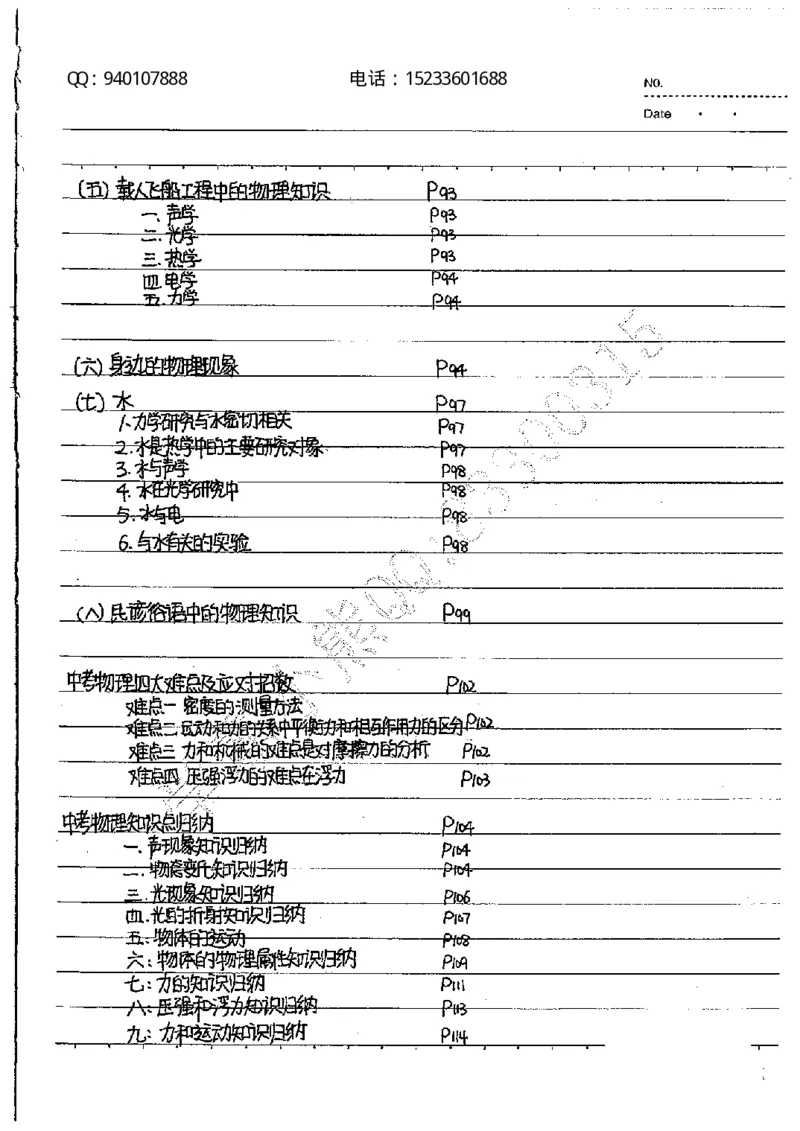 QQ：940107888 电话：15233601688
NO.
Date
(五) 载人飞船工程中的物理知识 P93
一. 声学 P93
二. 光学 P93
三. 热学 P93
四. 电学 P94
五. 力学 P94
(六) 身边的物理现象 P94
(七) 水 P97
1. 力学研究与水密切相关 P97
2. 水是热学中的主要研究对象 P97
3. 水与声学 P98
4. 水在光学研究中 P98
5. 水与电 P98
6. 与水有关的实验 P98
(八) 民谚俗语中的物理知识 P99
中考物理四大难点及应对招数 P102
难点一 密度的测量方法
难点二 运动和力的关系中平衡力和相互作用力的区分 P102
难点三 力和机械的难点是对摩擦力的分析 P102
难点四 压强浮力的难点在浮力 P103
中考物理知识点归纳 P104
一. 声现象知识归纳 P104
二. 物态变化知识归纳 P104
三. 光现象知识归纳 P106
四. 光的折射知识归纳 P107
五: 物体的运动 P108
六: 物体的物理属性知识归纳 P109
七: 力的知识归纳 P111
八: 压强和浮力知识归纳 P113
九: 力和运动知识归纳 P114